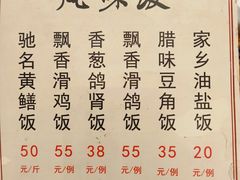 味饭
驰名黄鳝饭
50
元/斤
飘香滑鸡饭
55
元/例
香葱鸽肾饭
38
元/例
飘香滑鸽饭
55
元/例
腊味豆角饭
35
元/例
家乡油盐饭
20
元/例